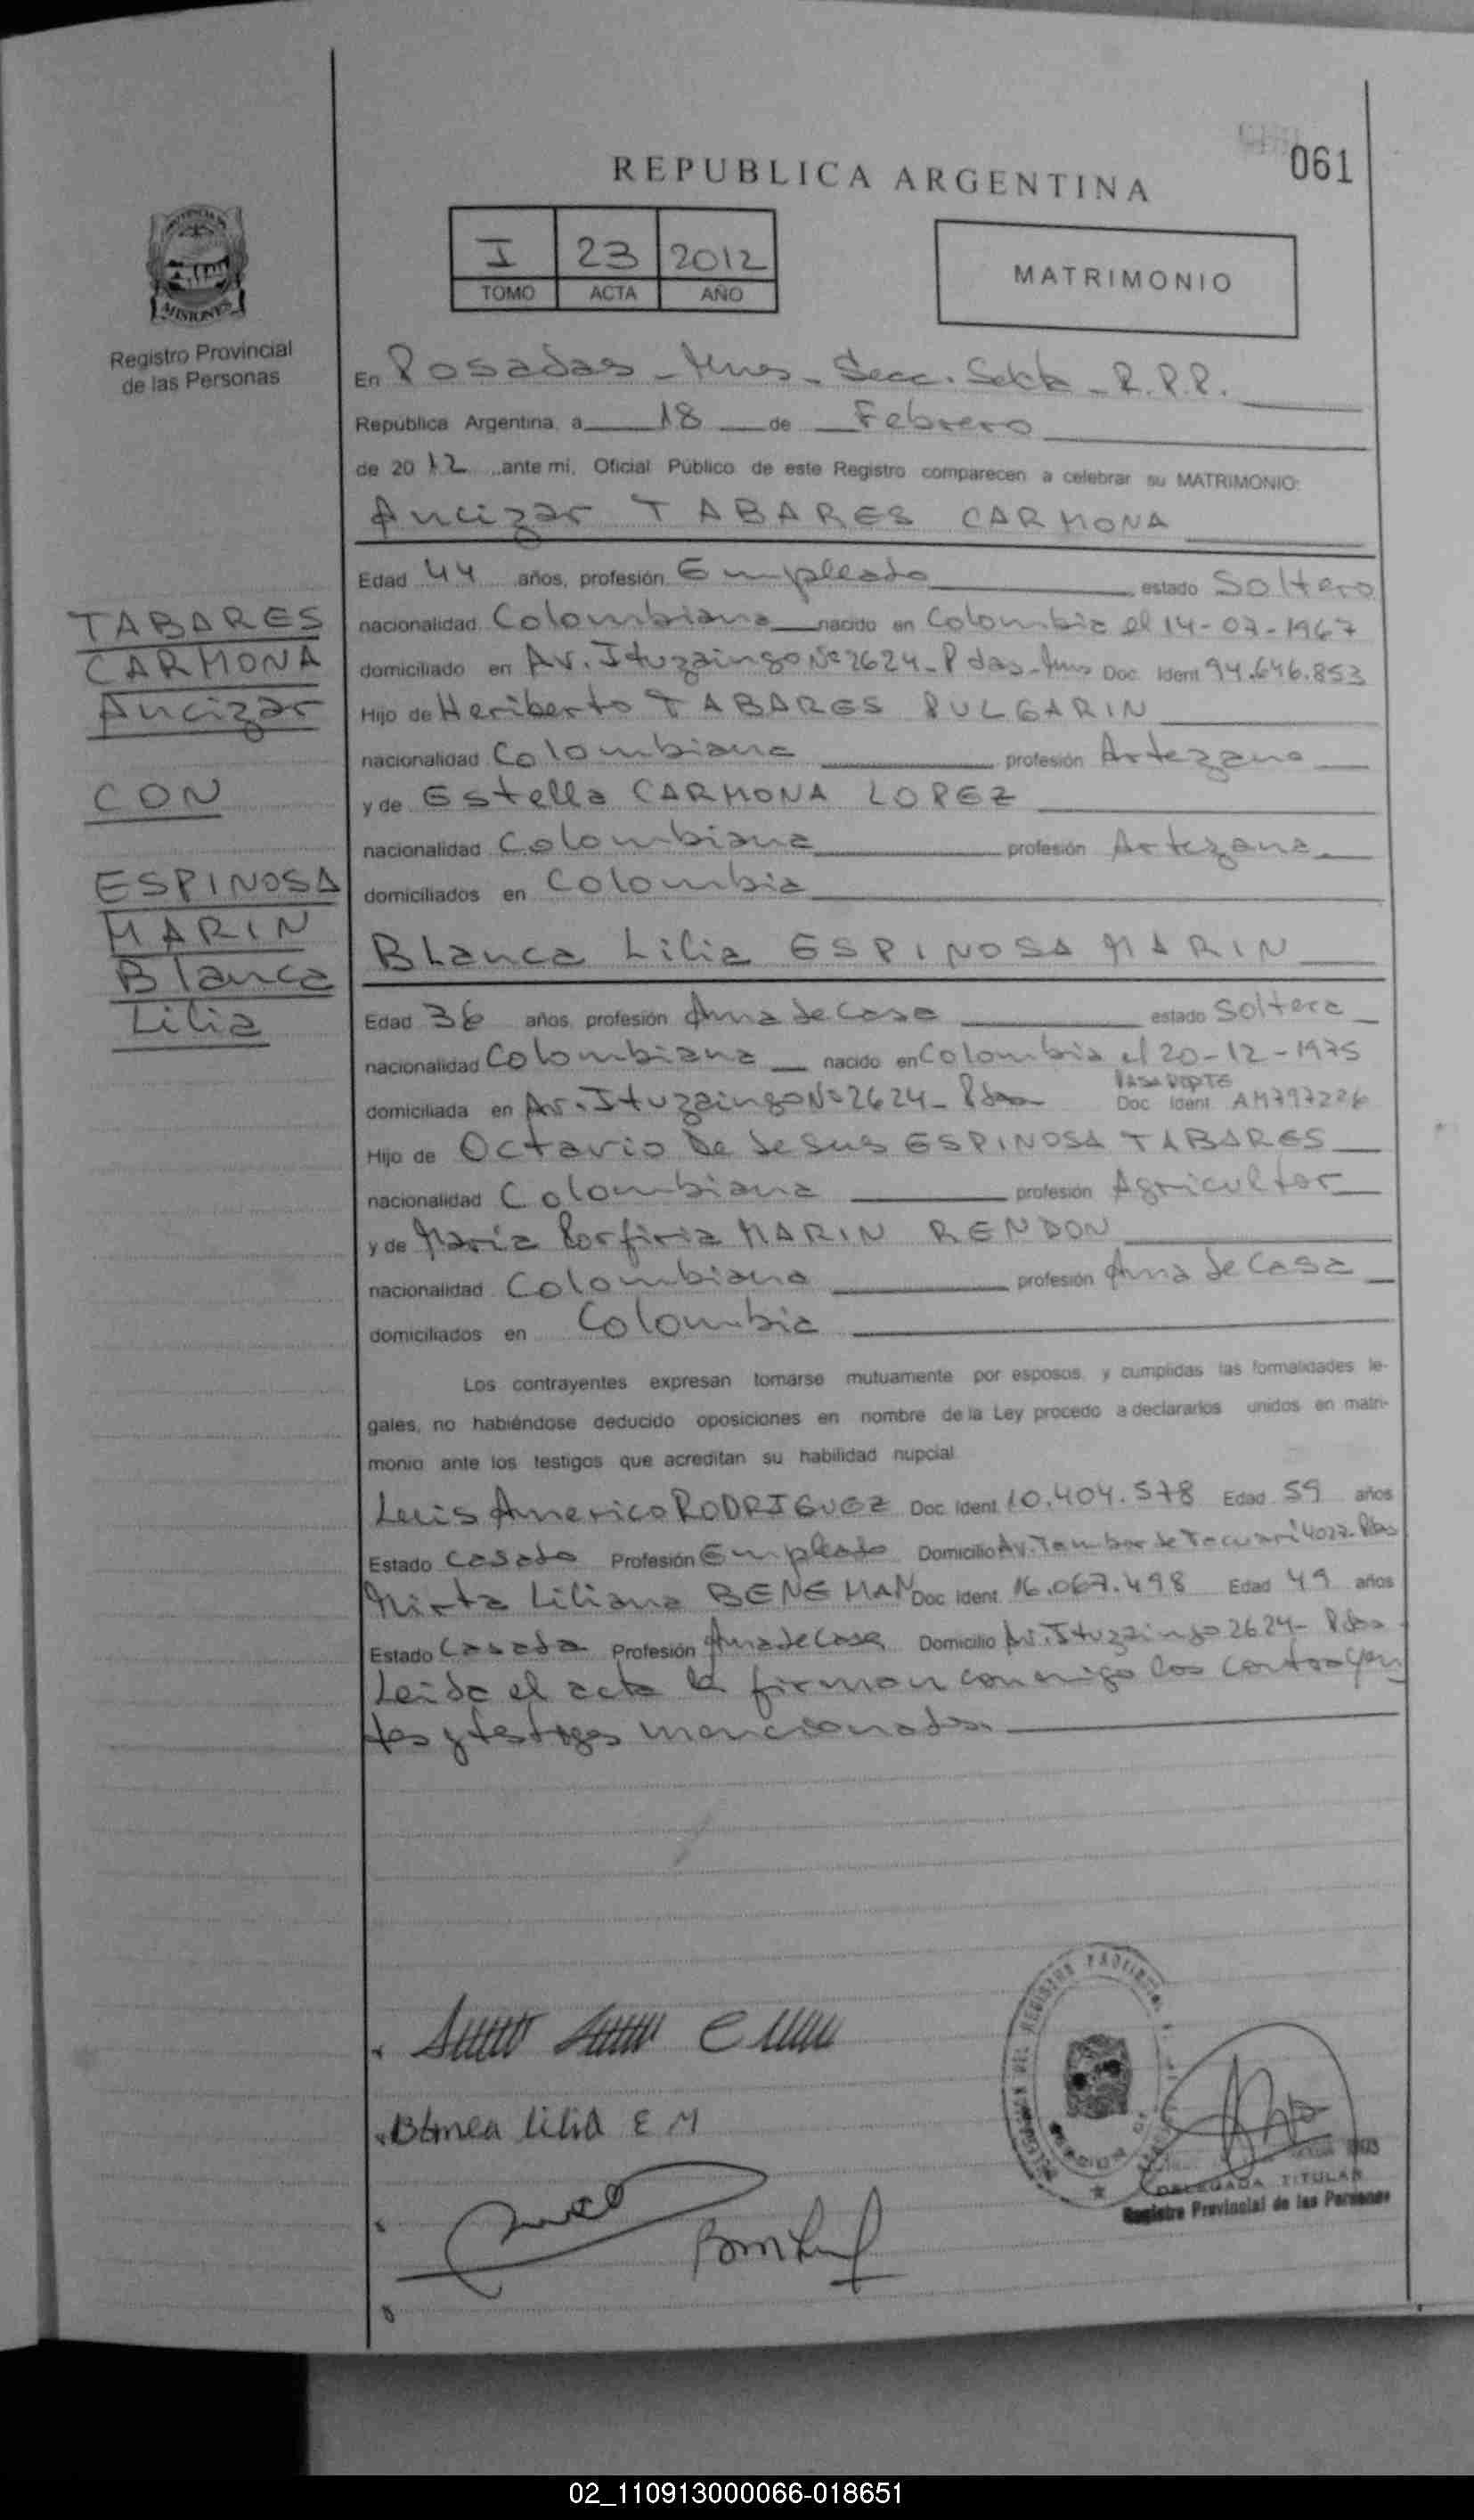 061
REPUBLICA ARGENTINA
I 23 2012
TOMO ACTA AÑO
MATRIMONIO
MISIONES
Registro Provincial
de las Personas
En Posadas - Mnes - Secc. Sexta - R.P.P.
República Argentina, a 18 de Febrero
de 2012 ante mi, Oficial Público de este Registro comparecen a celebrar su MATRIMONIO:
Ancizar TABARES CARMONA
Edad 44 años, profesión Empleado estado Soltero
nacionalidad Colombiana nacido en Colombia el 14-07-1967
domiciliado en Av. Ituzaingo Nº 2624 - Pdas - Mnes Doc. Ident 94.646.853
Hijo de Heriberto TABARES PULGARIN
nacionalidad Colombiana profesión Artezano
y de Estella CARMONA LOPEZ
nacionalidad Colombiana profesión Artezana
domiciliados en Colombia
TABARES
CARMONA
Ancizar
CON
ESPINOSA
MARIN
Blanca
Lilia
Blanca Lilia ESPINOSA MARIN
Edad 36 años, profesión Ama de Casa estado Soltera
nacionalidad Colombiana nacido en Colombia el 20-12-1975
domiciliada en Av. Ituzaingo Nº 2624 - Pdas PASAPORTE Doc Ident AM797226
Hijo de Octavio De Jesus ESPINOSA TABARES
nacionalidad Colombiana profesión Agricultor
y de Maria Porfiria MARIN RENDON
nacionalidad Colombiana profesión Ama de Casa
domiciliados en Colombia
Los contrayentes expresan tomarse mutuamente por esposos, y cumplidas las formalidades le-
gales, no habiéndose deducido oposiciones en nombre de la Ley procedo a declararlos unidos en matri-
monio ante los testigos que acreditan su habilidad nupcial
Luis Americo RODRIGUEZ Doc. Ident. 10.404.578 Edad 59 años
Estado Casado Profesión Empleado Domicilio Av. Tambor de Tacuari 4027 - Pdas
Mirta Liliana BENEMAN Doc. Ident. 16.067.498 Edad 49 años
Estado Casada Profesión Ama de Casa Domicilio Av. Ituzaingo 2624 - Pdas
Leida el acta la firman conmigo los contrayen
tes y testigos mencionados.
Blanca lilia E M
DELEGADA TITULAR
Registro Provincial de las Personas
02_110913000066-018651